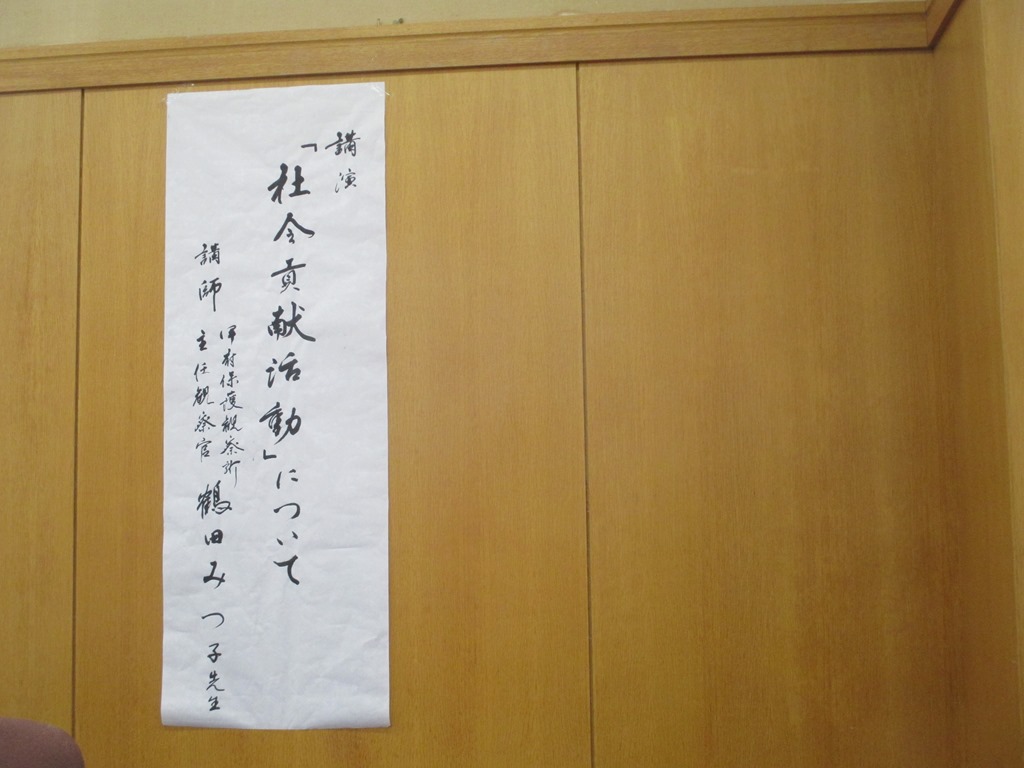 講演
「社会貢献活動」について
講師
保護観察所
主任観察官
鶴田みつ子先生